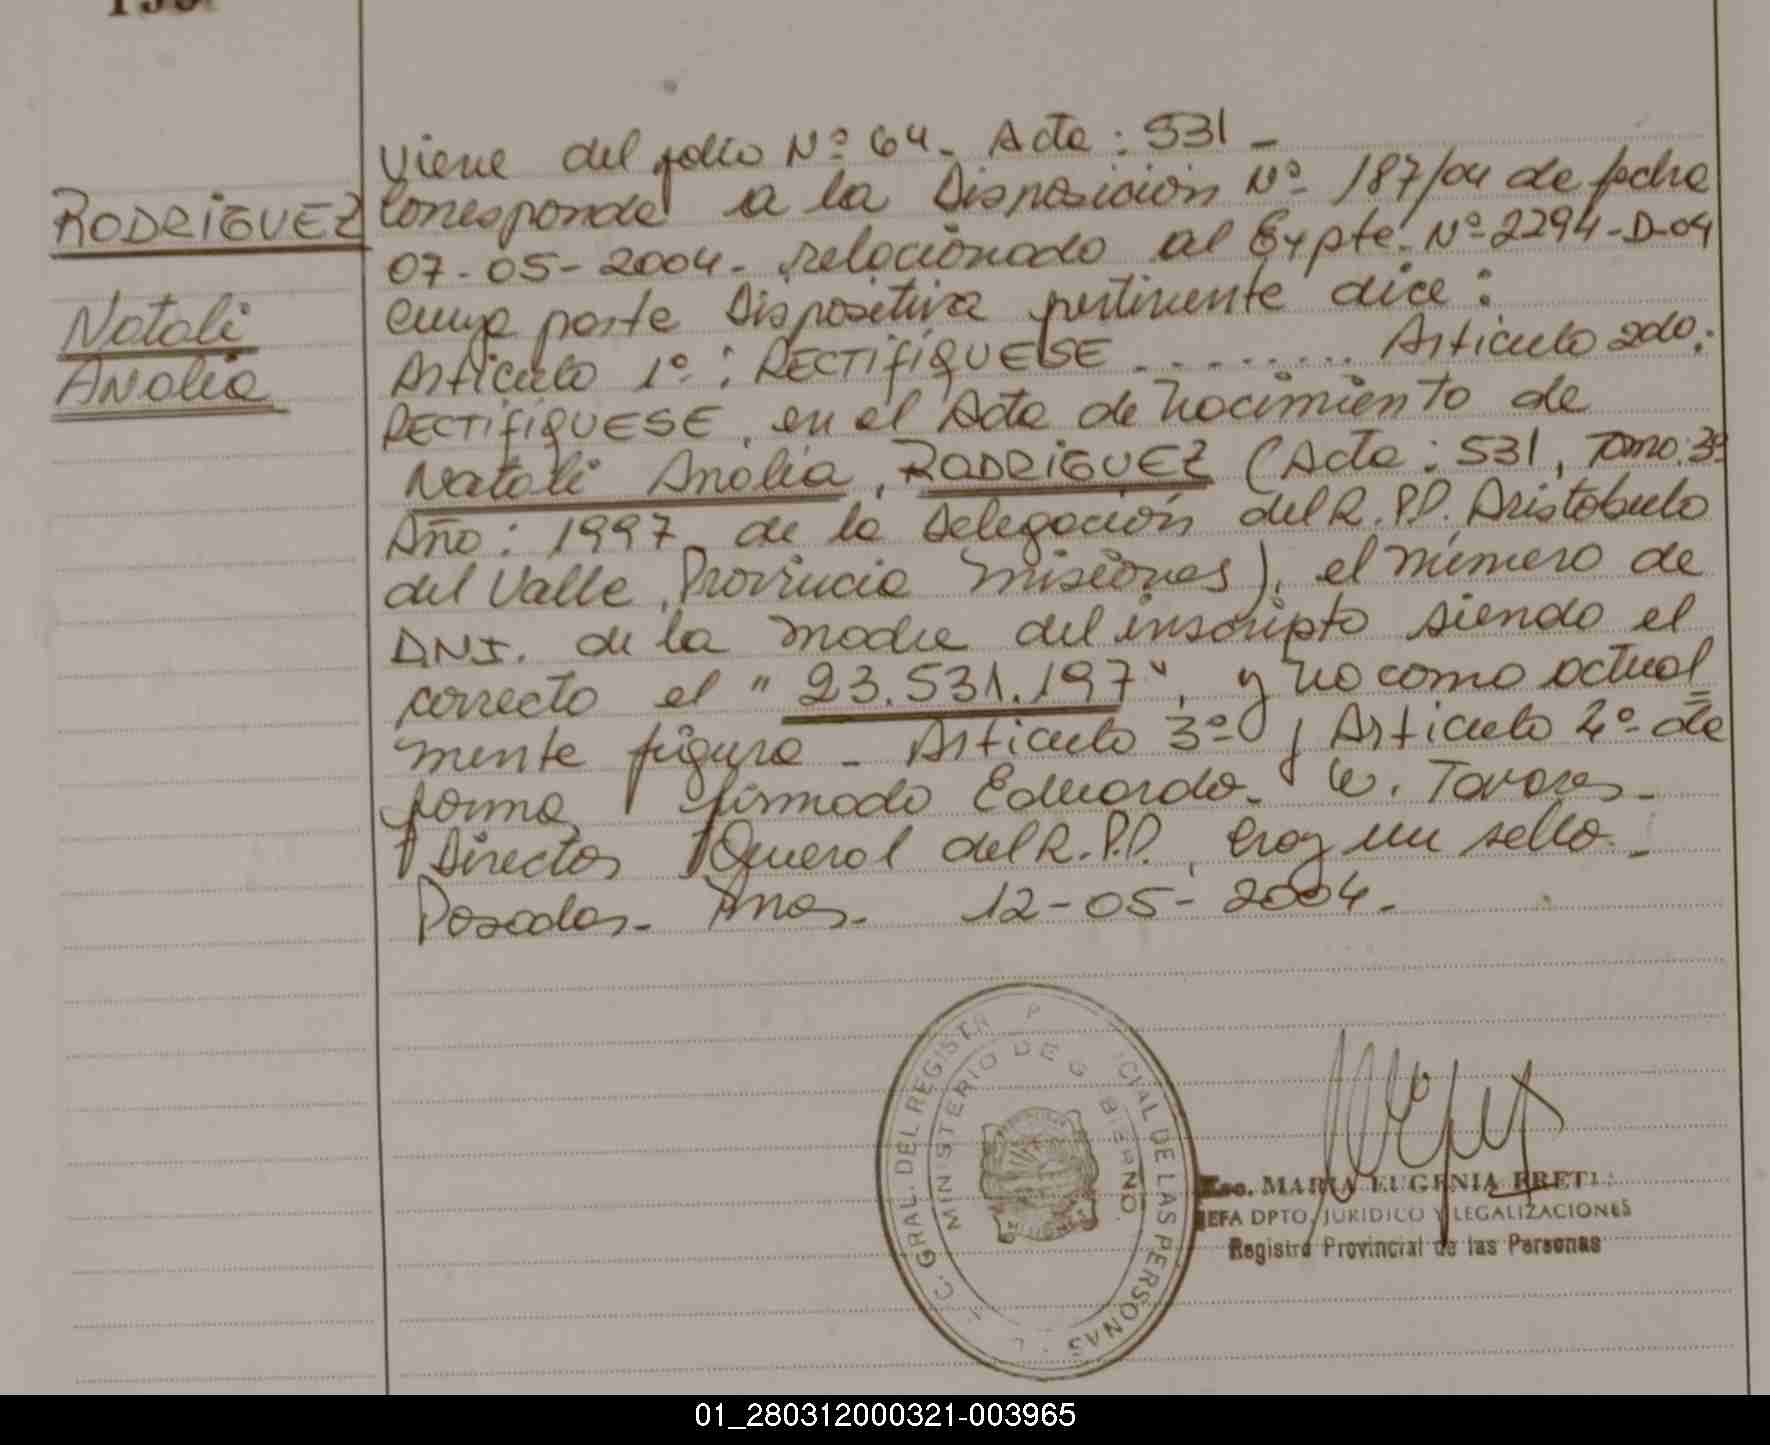 RODRIGUEZ
Natali
Analia
Viene del folio Nº 64. Acta: 531 -
Corresponde a la Disposición Nº 187/04 de fecha
07-05-2004 - relacionado al Expte. Nº 2294-D-04
cuya parte Dispositiva pertinente dice:
Artículo 1º: RECTIFÍQUESE ........ Artículo 2do:
RECTIFÍQUESE, en el Acta de Nacimiento de
Natali Analia, RODRIGUEZ (Acta: 531, Tomo: 3º
Año: 1997, de la Delegación del R.P.P. Aristobulo
del Valle, Provincia Misiones), el número de
D.N.I. de la madre del inscripto siendo el
correcto el "23.531.197", y no como actual=
mente figura - Artículo 3º y Artículo 4º de
forma, firmado Eduardo. W. Tavares -
Director General del R.P.P., hay un sello. -
Posadas - Mnes. 12-05-2004. -
GRAL. DEL REGISTR P ICIAL DE LAS PERSONAS
MINISTERIO DE G BIERNO
MISIONES
Esc. MARIA EUGENIA
JEFA DPTO. JURIDICO Y LEGALIZACIONES
Registro Provincial de las Personas
01_280312000321-003965